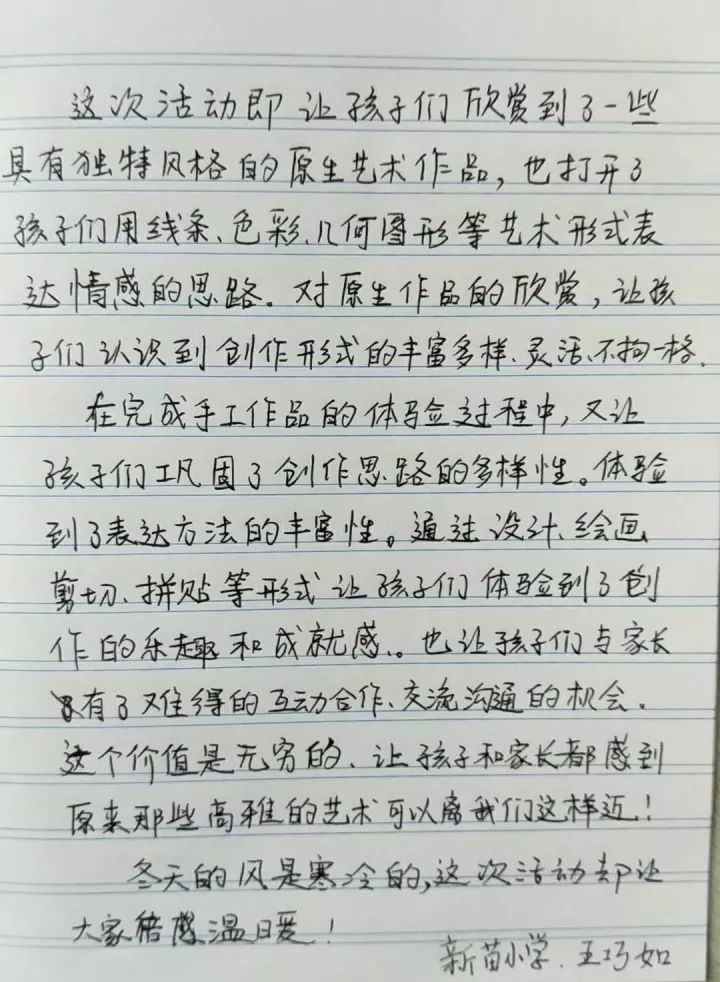 这次活动即让孩子们欣赏到了一些
具有独特风格的原生艺术作品，也打开了
孩子们用线条、色彩、几何图形等艺术形式表
达情感的思路。对原生作品的欣赏，让孩
子们认识到创作形式的丰富多样、灵活、不拘一格.
在完成手工作品的体验过程中，又让
孩子们巩固了创作思路的多样性。体验
到了表达方法的丰富性。通过设计、绘画
剪切、拼贴等形式让孩子们体验到了创
作的乐趣和成就感。也让孩子们与家长
有了难得的互动合作、交流沟通的机会.
这个价值是无穷的、让孩子和家长都感到
原来那些高雅的艺术可以离我们这样近！
冬天的风是寒冷的,这次活动却让
大家倍感温暖！
新苗小学、王巧如